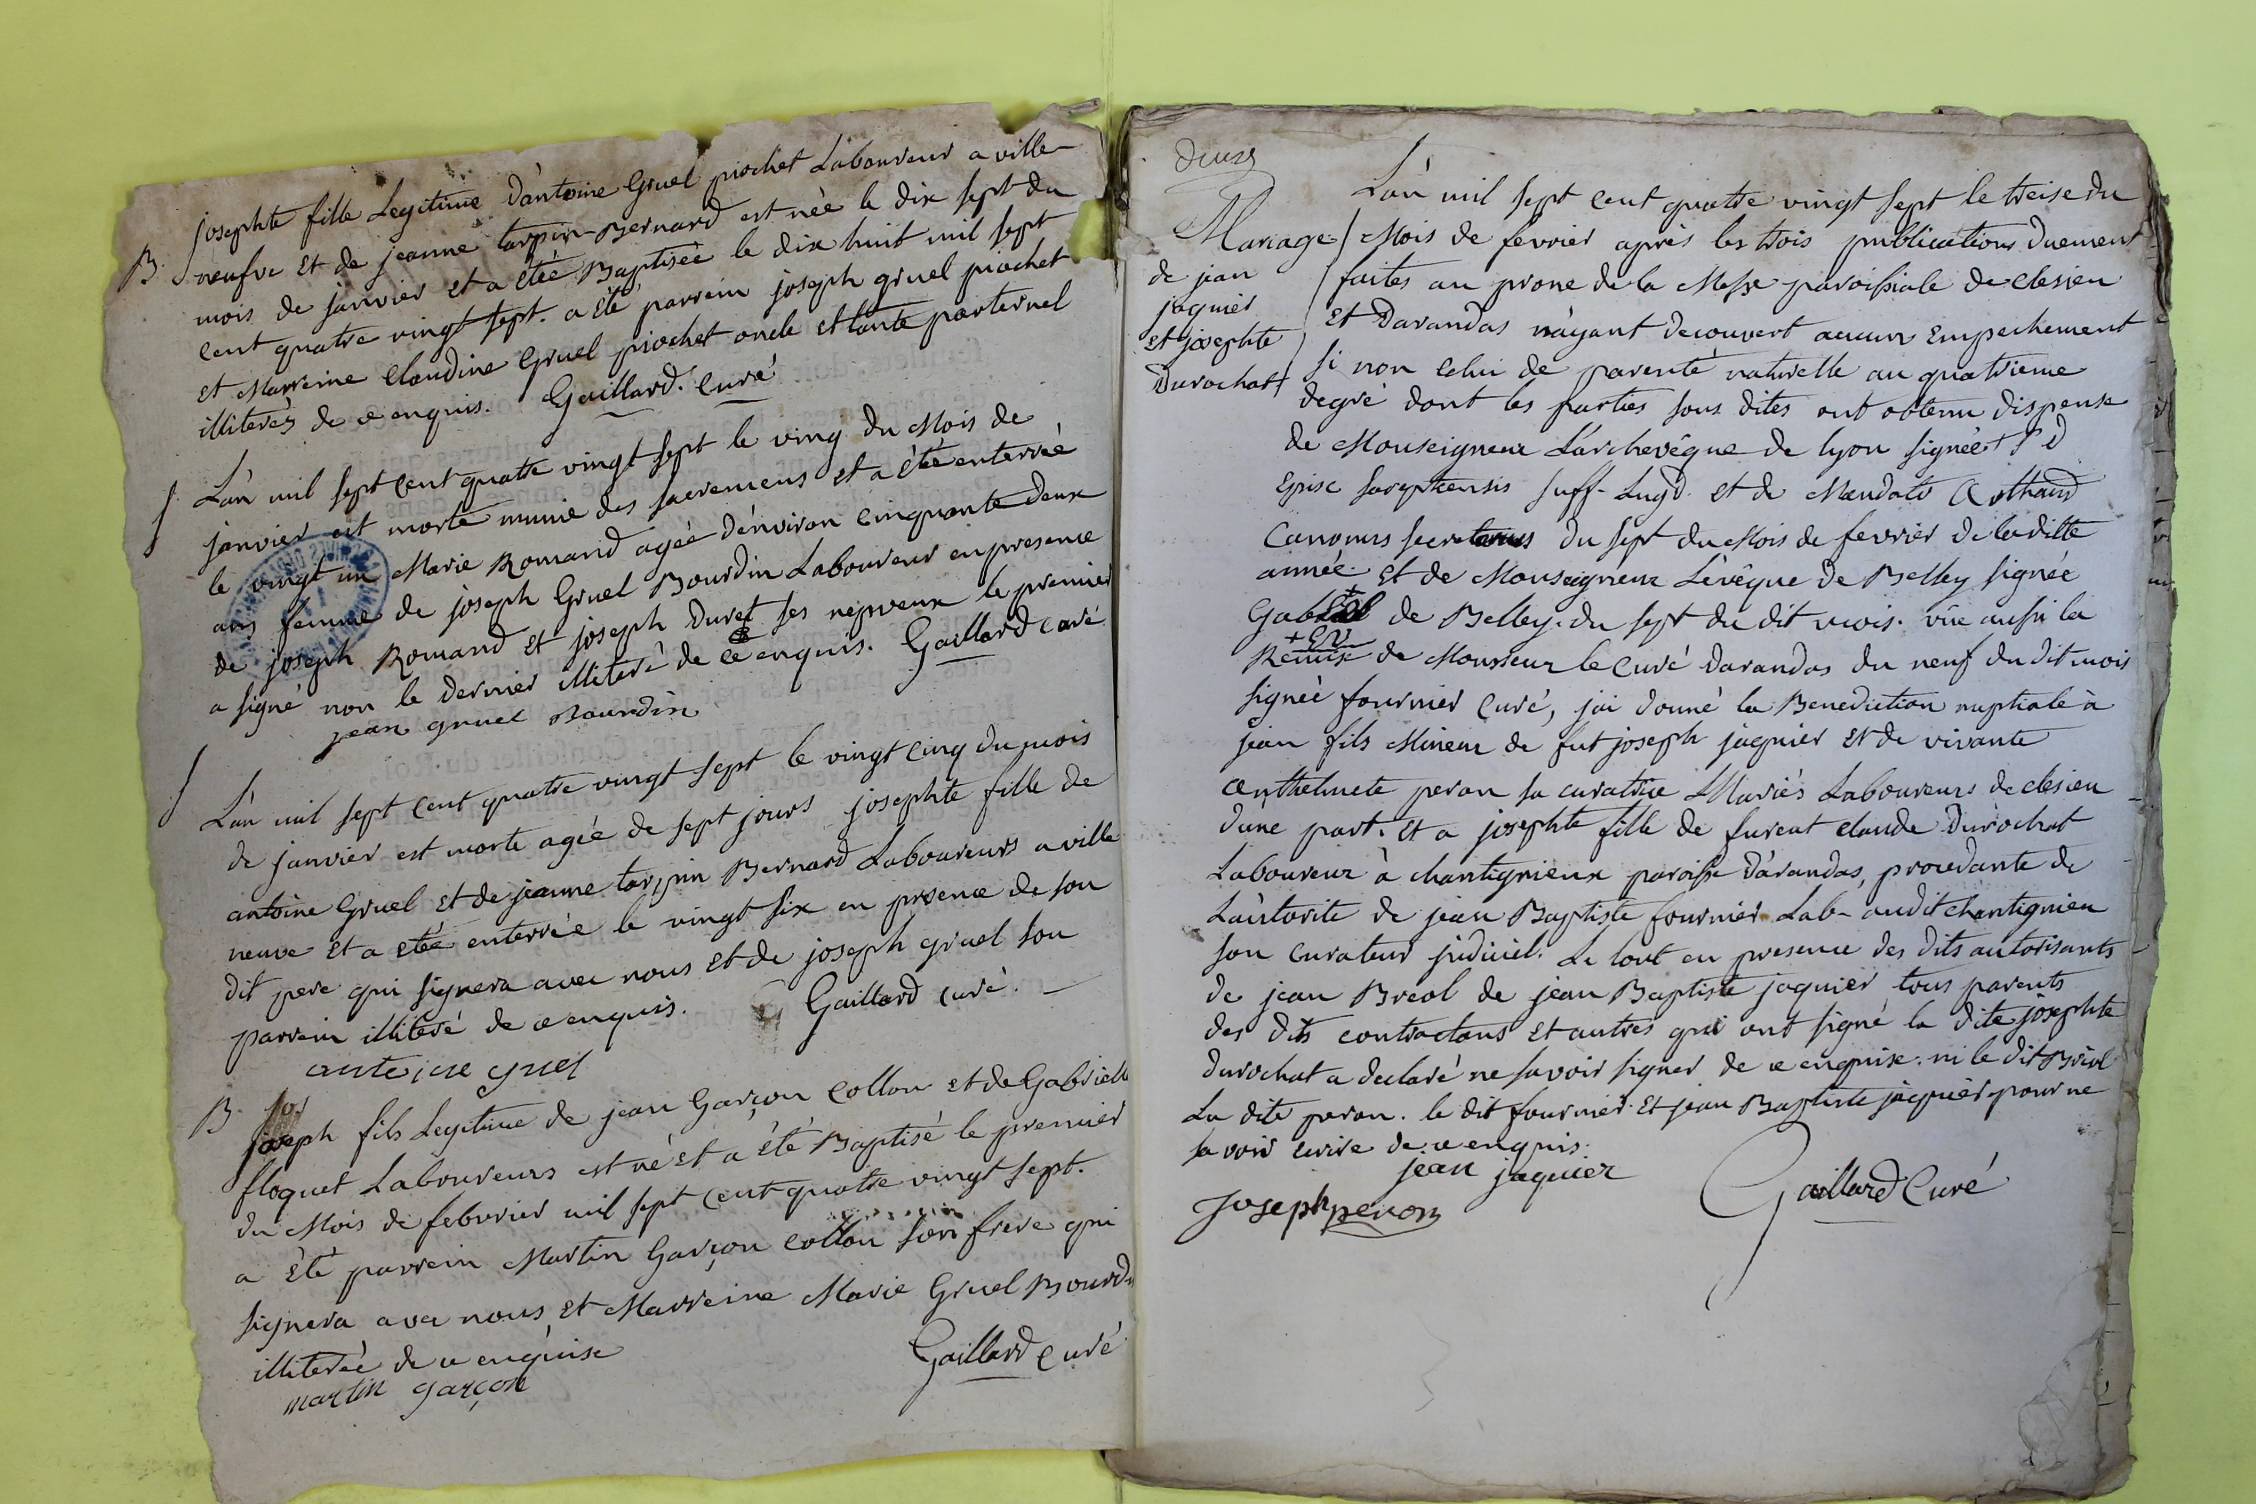 B. josephte fille Legitime d'antoine Gruel piochet Laboureur a ville
neufve et de jeanne tarpin-Bernard est née le dix sept du
mois de janvier et a étée Baptisée le dix huit mil sept
cent quatre vingt sept. a été parrein joseph gruel piochet
et Marreine claudine Gruel piochet oncle et tante parternel
illiterés de ce enquis. Gaillard. curé
S L'an mil sept cent quatre vingt sept le ving du Mois de
janvier est morte munie des sacremens et a étée enterrée
le vingt un Marie Romand agée d'environ cinquante deux
ans femme de joseph Gruel Bourdin Laboureur en presence
de joseph Romand et joseph Duret ses nepveux le premier
a signé non le dernier illiteré de ce enquis. Gaillard curé
jean gruel Bourdin
S L'an mil sept cent quatre vingt sept le vingt cinq du mois
de janvier est morte agée de sept jours josephte fille de
antoine Gruel et de jeanne tarpin Bernard Laboureurs a ville
neuve et a etée enterrée le vingt six en presence de son
dit pere qui signera avec nous et de joseph gruel son
parrein illiteré de ce enquis. Gaillard curé.
antoine gruel
B. jos
joseph fils Legitime de jean Garçon Collon et de Gabrielle
floquet Laboureurs est né et a été Baptisé le premier
du Mois de febvrier mil sept cent quatre vingt sept.
a été parrein Martin Garçon collon son frere qui
signera avec nous et Marreine Marie Gruel Bourdin
illiterée de ce enquise Gaillard curé
martin garçon
deux
Mariage
de jean
jaquier
et josephte
Durochat
L'an mil sept cent quatre vingt sept le treise du
Mois de fevrier après les trois publications duement
faites au prone de la Messe paroissiale de clesieu
et Darandas n'ayant decouvert aucun Empechement
si non celui de parenté naturelle au quatrieme
degré dont les parties sous dites ont obtenu dispense
de Monseigneur L'archevêque de lyon signée + J d
Episc sareptensis suff. Lugd. et de Mandato
Canonus secretarius du sept du Mois de fevrier de laditte
année. et de Monseigneur L'evêque de Belley signée
+ Gabriel de Belley. du sept du dit mois. vüe aussi la
+ ev
Remise de Monsieur le Curé Darandas du neuf du dit mois
signée fournier curé, jai donné la Benediction nuptiale à
jean fils Mineur de fut joseph jaquier et de vivante
anthelmete peron sa curatrice Mariés Laboureurs de clesieu
d'une part. et a josephte fille de fureat claude Durochat
Laboureur à chantignieux paroisse D'arandas, procedante de
L'autorite de jean Baptiste fournier Lab- audit chantignieu
son curateur judiciel. Le tout en presence des dits autorisants
de jean Breol de jean Baptiste jaquier tous parents
des dits contractans et autres qui ont signé la dite josephte
Durochat a declaré ne savoir signer de ce enquise. ni le dit Breol
La dite peron. le dit fournier. et jean Baptiste jaquier pour ne
savoir ecrire de ce enquis.
jean jaquier
joseph peron Gaillard Curé